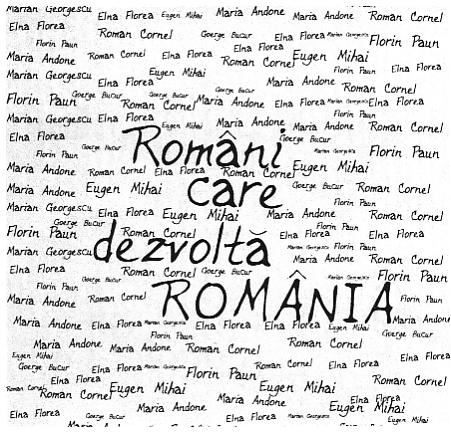 Marian Georgescu Elna Florea Eugen Mihai Maria Andone Roman Cornel
Elna Florea Roman Cornel Goerge Bucur Maria Andone Marian Georgescu
Florin Paun Elna Florea Eugen Mihai Florin Paun
Maria Andone Roman Cornel Roman Cornel Elna Florea
Marian Georgescu Eugen Mihai Florin Paun
Elna Florea Goerge Bucur Goerge Bucur Roman Cornel
Florin Paun Goerge Bucur Roman Cornel Maria Andone Elna Florea Marian Georgescu Elna Florea
Marian Georgescu Eugen Mihai Maria Andone Roman Cornel
Elna Florea Goerge Bucur
Români
Florin Paun Goerge Bucur Marian Georgescu Florin Paun
Maria Andone Roman Cornel Elna Florea Roman Cornel Eugen Mihai
Maria Andone Eugen Mihai Goerge Bucur Roman Cornel
care
Marian Georgescu Elna Florea Eugen Mihai Maria Andone Roman Cornel
Florin Paun Goerge Bucur Roman Cornel Elna Florea
dezvoltă
Maria Andone Marian Georgescu Florin Paun
Marian Georgescu Elna Florea Florin Paun Goerge Bucur
Elna Florea Roman Cornel Goerge Bucur Marian Georgescu Florin Paun
Goerge Bucur
ROMÂNIA
Maria Andone Roman Cornel Florin Paun
Maria Andone Elna Florea Marian Georgescu Elna Florea Elna Florea Eugen Mihai Maria Andone
Elna Florea Maria Andone Roman Cornel Maria Andone Roman Cornel
Eugen Mihai Goerge Bucur Florin Paun Roman Cornel Florin Paun
Roman Cornel Elna Florea Eugen Mihai Elna Florea Roman Cornel
Roman Cornel Maria Andone Eugen Mihai Elna Florea
Elna Florea Goerge Bucur Maria Andone Elna Florea Marian Georgescu Eugen Mihai